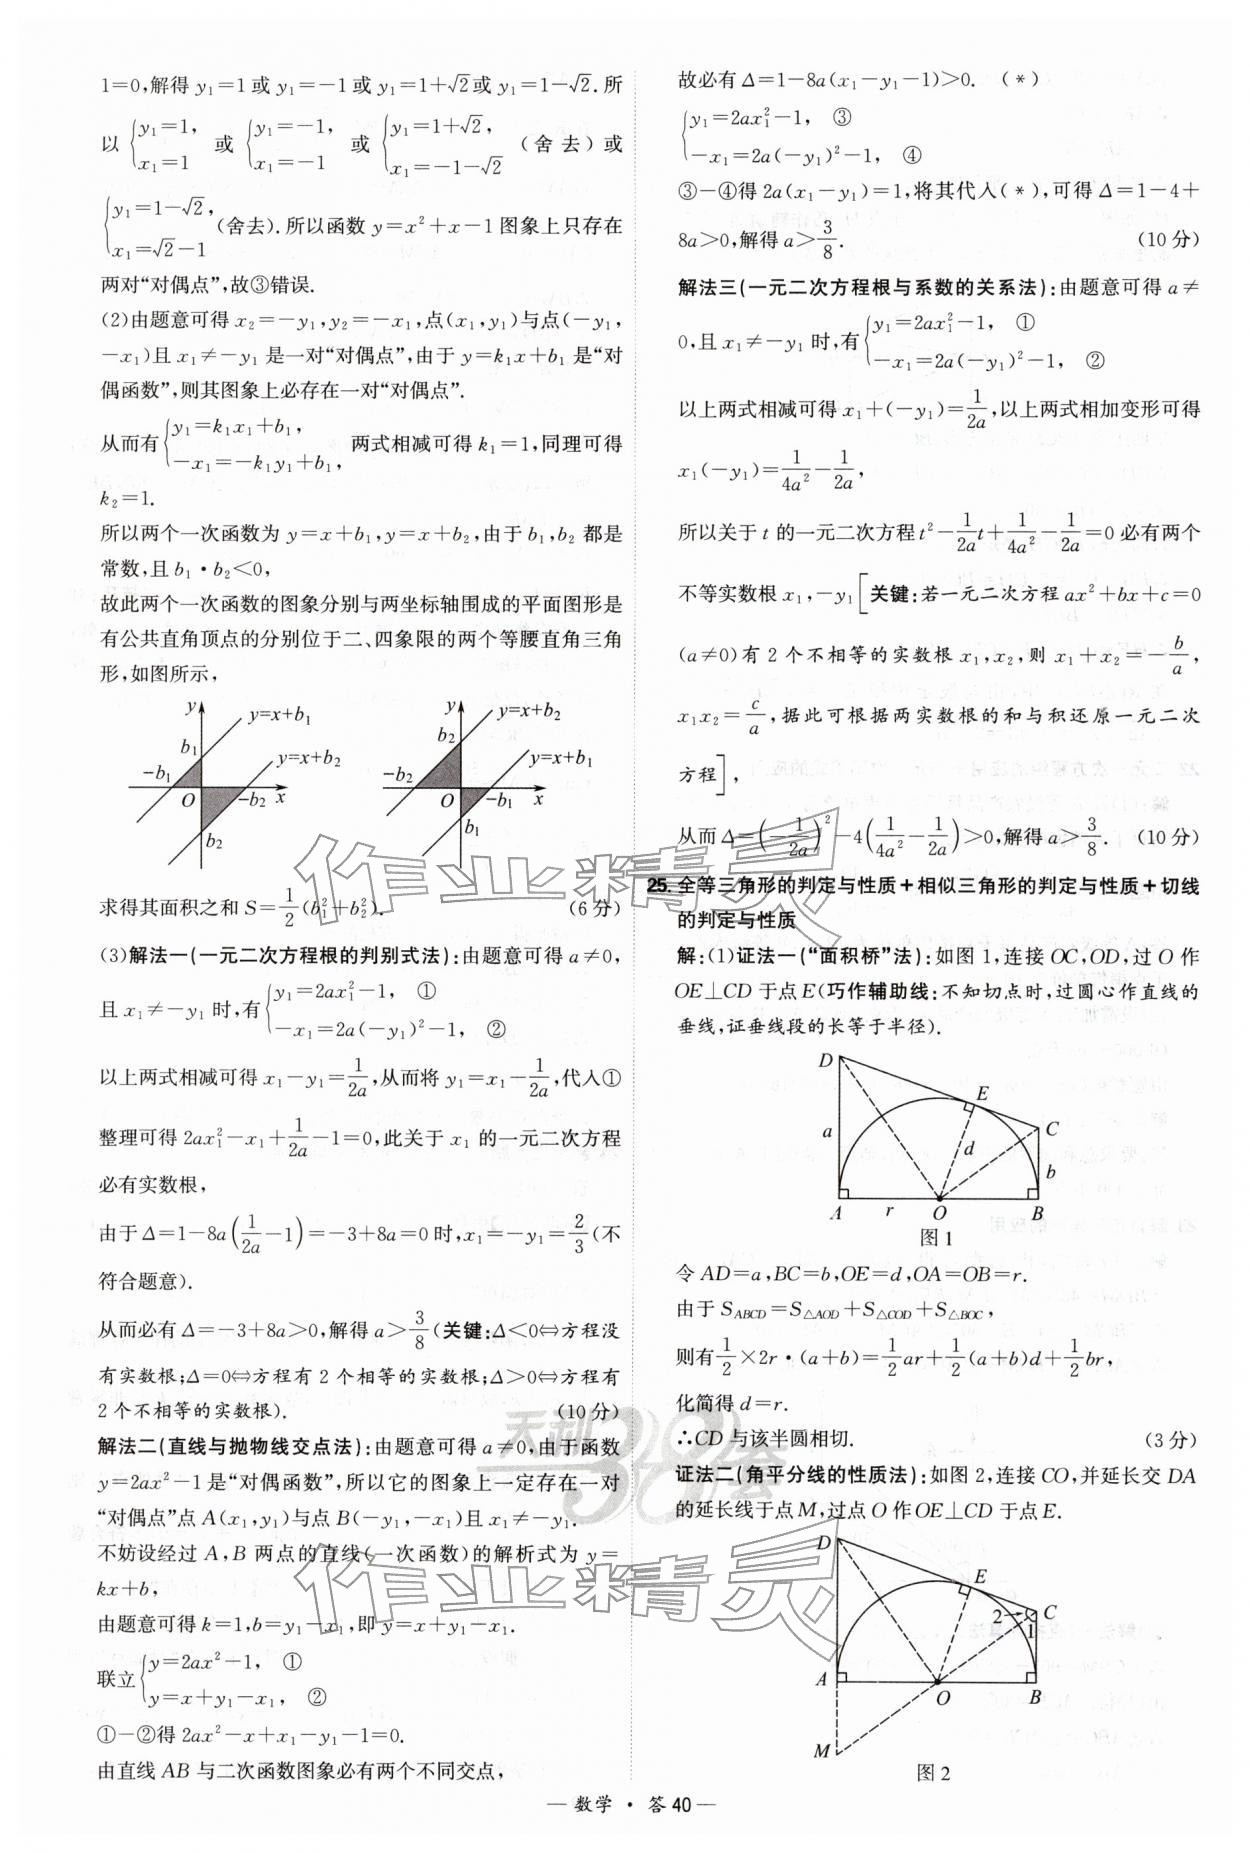 1=0,解得 y₁=1或 y₁=-1或 y₁=1+√2或 y₁=1-√2.所
以 {y₁=1, x₁=1 或 {y₁=-1, x₁=-1 或 {y₁=1+√2, x₁=-1-√2 (舍去)或
{y₁=1-√2, x₁=√2-1 (舍去).所以函数 y=x²+x-1图象上只存在
两对“对偶点”,故③错误.
(2)由题意可得 x₂=-y₁,y₂=-x₁,点(x₁,y₁)与点(-y₁,
-x₁)且 x₁≠-y₁ 是一对“对偶点”,由于 y=k₁x+b₁ 是“对
偶函数”,则其图象上必存在一对“对偶点”.
从而有 {y₁=k₁x₁+b₁, -x₁=-k₁y₁+b₁, 两式相减可得 k₁=1,同理可得
k₂=1.
所以两个一次函数为 y=x+b₁,y=x+b₂,由于 b₁,b₂ 都是
常数,且 b₁·b₂<0,
故此两个一次函数的图象分别与两坐标轴围成的平面图形是
有公共直角顶点的分别位于二、四象限的两个等腰直角三角
形,如图所示,
y y=x+b₁ b₁ y=x+b₂ -b₁ O -b₂ x b₂
y y=x+b₂ b₂ y=x+b₁ -b₂ O -b₁ x b₁
求得其面积之和 S=1/2(b₁²+b₂²). (6分)
(3)解法一(一元二次方程根的判别式法):由题意可得 a≠0,
且 x₁≠-y₁ 时,有 {y₁=2ax₁²-1, ① -x₁=2a(-y₁)²-1, ②
以上两式相减可得 x₁-y₁=1/2a,从而将 y₁=x₁-1/2a,代入①
整理可得 2ax₁²-x₁+1/2a-1=0,此关于 x₁ 的一元二次方程
必有实数根,
由于 Δ=1-8a(1/2a-1)=-3+8a=0时,x₁=-y₁=2/3(不
符合题意).
从而必有 Δ=-3+8a>0,解得 a>3/8(关键:Δ<0⇔方程没
有实数根;Δ=0⇔方程有 2 个相等的实数根;Δ>0⇔方程有
2个不相等的实数根). (10分)
解法二(直线与抛物线交点法):由题意可得 a≠0,由于函数
y=2ax²-1 是“对偶函数”,所以它的图象上一定存在一对
“对偶点”点 A(x₁,y₁)与点 B(-y₁,-x₁)且 x₁≠-y₁.
不妨设经过 A,B 两点的直线(一次函数)的解析式为 y=
kx+b,
由题意可得 k=1,b=y₁-x₁,即 y=x+y₁-x₁.
联立 {y=2ax²-1, ① y=x+y₁-x₁, ②
①-②得 2ax²-x+x₁-y₁-1=0.
由直线 AB 与二次函数图象必有两个不同交点,
故必有 Δ=1-8a(x₁-y₁-1)>0. (*)
{y₁=2ax₁²-1, ③ -x₁=2a(-y₁)²-1, ④
③-④得 2a(x₁-y₁)=1,将其代入(*),可得 Δ=1-4+
8a>0,解得 a>3/8. (10分)
解法三(一元二次方程根与系数的关系法):由题意可得 a≠
0,且 x₁≠-y₁ 时,有 {y₁=2ax₁²-1, ① -x₁=2a(-y₁)²-1, ②
以上两式相减可得 x₁+(-y₁)=1/2a,以上两式相加变形可得
x₁(-y₁)=1/4a²-1/2a,
所以关于 t 的一元二次方程 t²-1/2a t+1/4a²-1/2a=0必有两个
不等实数根 x₁,-y₁[关键:若一元二次方程 ax²+bx+c=0
(a≠0)有 2 个不相等的实数根 x₁,x₂,则 x₁+x₂=-b/a,
x₁x₂=c/a,据此可根据两实数根的和与积还原一元二次
方程],
从而 Δ=(-1/2a)²-4(1/4a²-1/2a)>0,解得 a>3/8. (10分)
25. 全等三角形的判定与性质+相似三角形的判定与性质+切线
的判定与性质
解:(1)证法一(“面积桥”法):如图1,连接 OC,OD,过 O 作
OE⊥CD 于点 E(巧作辅助线:不知切点时,过圆心作直线的
垂线,证垂线段的长等于半径).
D E C a d b A r O B
图1
令 AD=a,BC=b,OE=d,OA=OB=r.
由于 S_ABCD=S△AOD+S△COD+S△BOC,
则有 1/2×2r·(a+b)=1/2ar+1/2(a+b)d+1/2br,
化简得 d=r.
∴CD 与该半圆相切. (3分)
证法二(角平分线的性质法):如图2,连接 CO,并延长交 DA
的延长线于点 M,过点 O 作 OE⊥CD 于点 E.
D E 2 C 1 A O B M
图2
— 数学 · 答40 —
作业精灵
天利38套
作业精灵